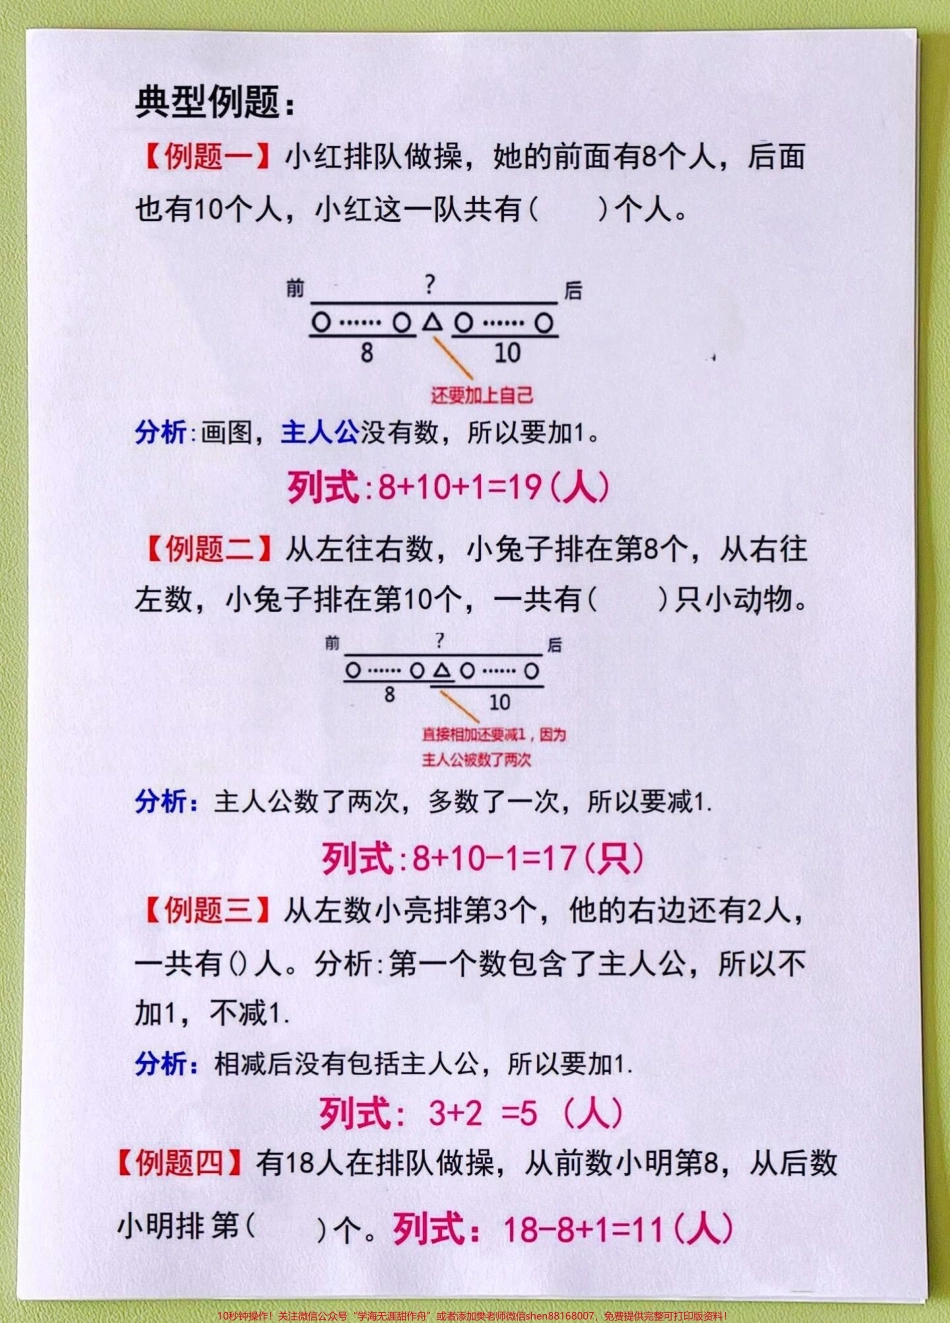 典型例题：
【例题一】小红排队做操，她的前面有8个人，后面
也有10个人，小红这一队共有(    )个人。
前 ? 后
○……○△○……○
8 10
还要加上自己
分析:画图，主人公没有数，所以要加1。
列式:8+10+1=19(人)
【例题二】从左往右数，小兔子排在第8个，从右往
左数，小兔子排在第10个，一共有(    )只小动物。
前 ? 后
○……○△○……○
8 10
直接相加还要减1，因为
主人公被数了两次
分析：主人公数了两次，多数了一次，所以要减1.
列式:8+10-1=17(只)
【例题三】从左数小亮排第3个，他的右边还有2人，
一共有()人。分析:第一个数包含了主人公，所以不
加1，不减1.
分析：相减后没有包括主人公，所以要加1.
列式: 3+2 =5 (人)
【例题四】有18人在排队做操，从前数小明第8，从后数
小明排第(    )个。列式：18-8+1=11(人)
10秒钟操作！关注微信公众号“学海无涯甜作舟”或者添加樊老师微信shen88168007，免费提供完整可打印版资料！